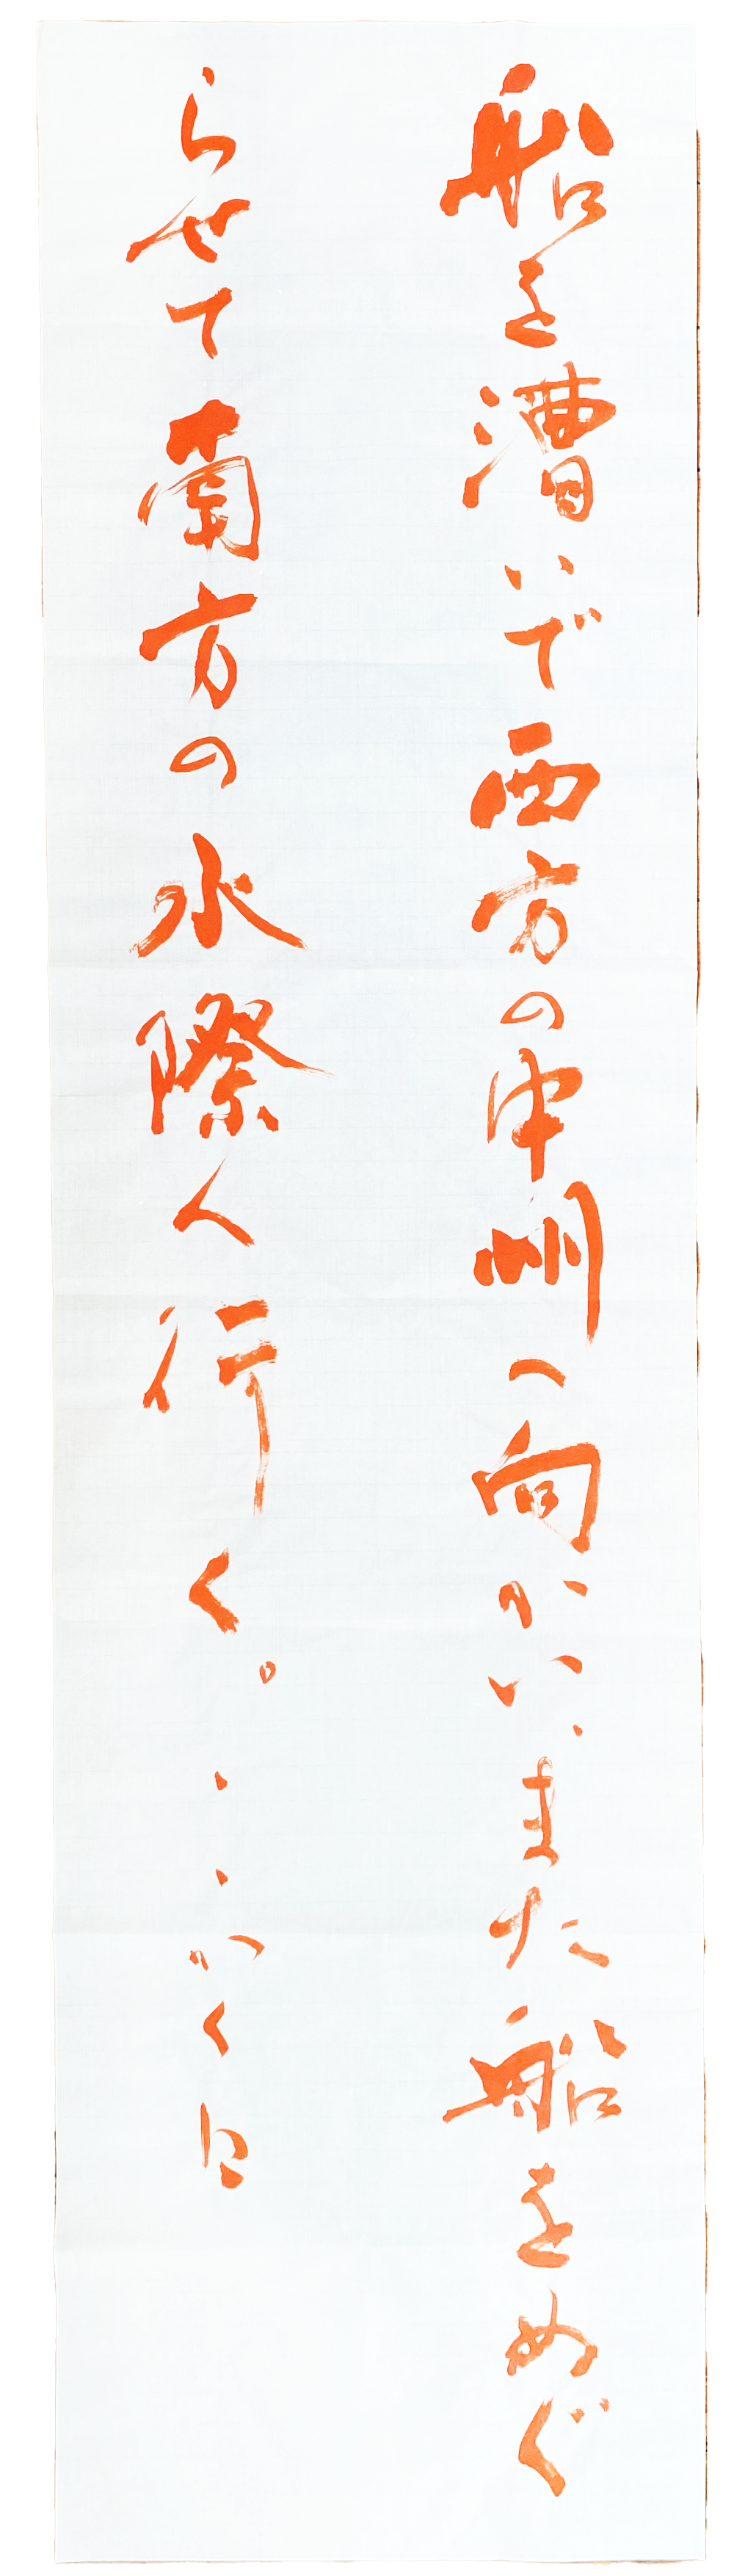 船を漕いで西方の中州へ向かい、また船をめぐ
らせて南方の水際へ行く。、、いくに